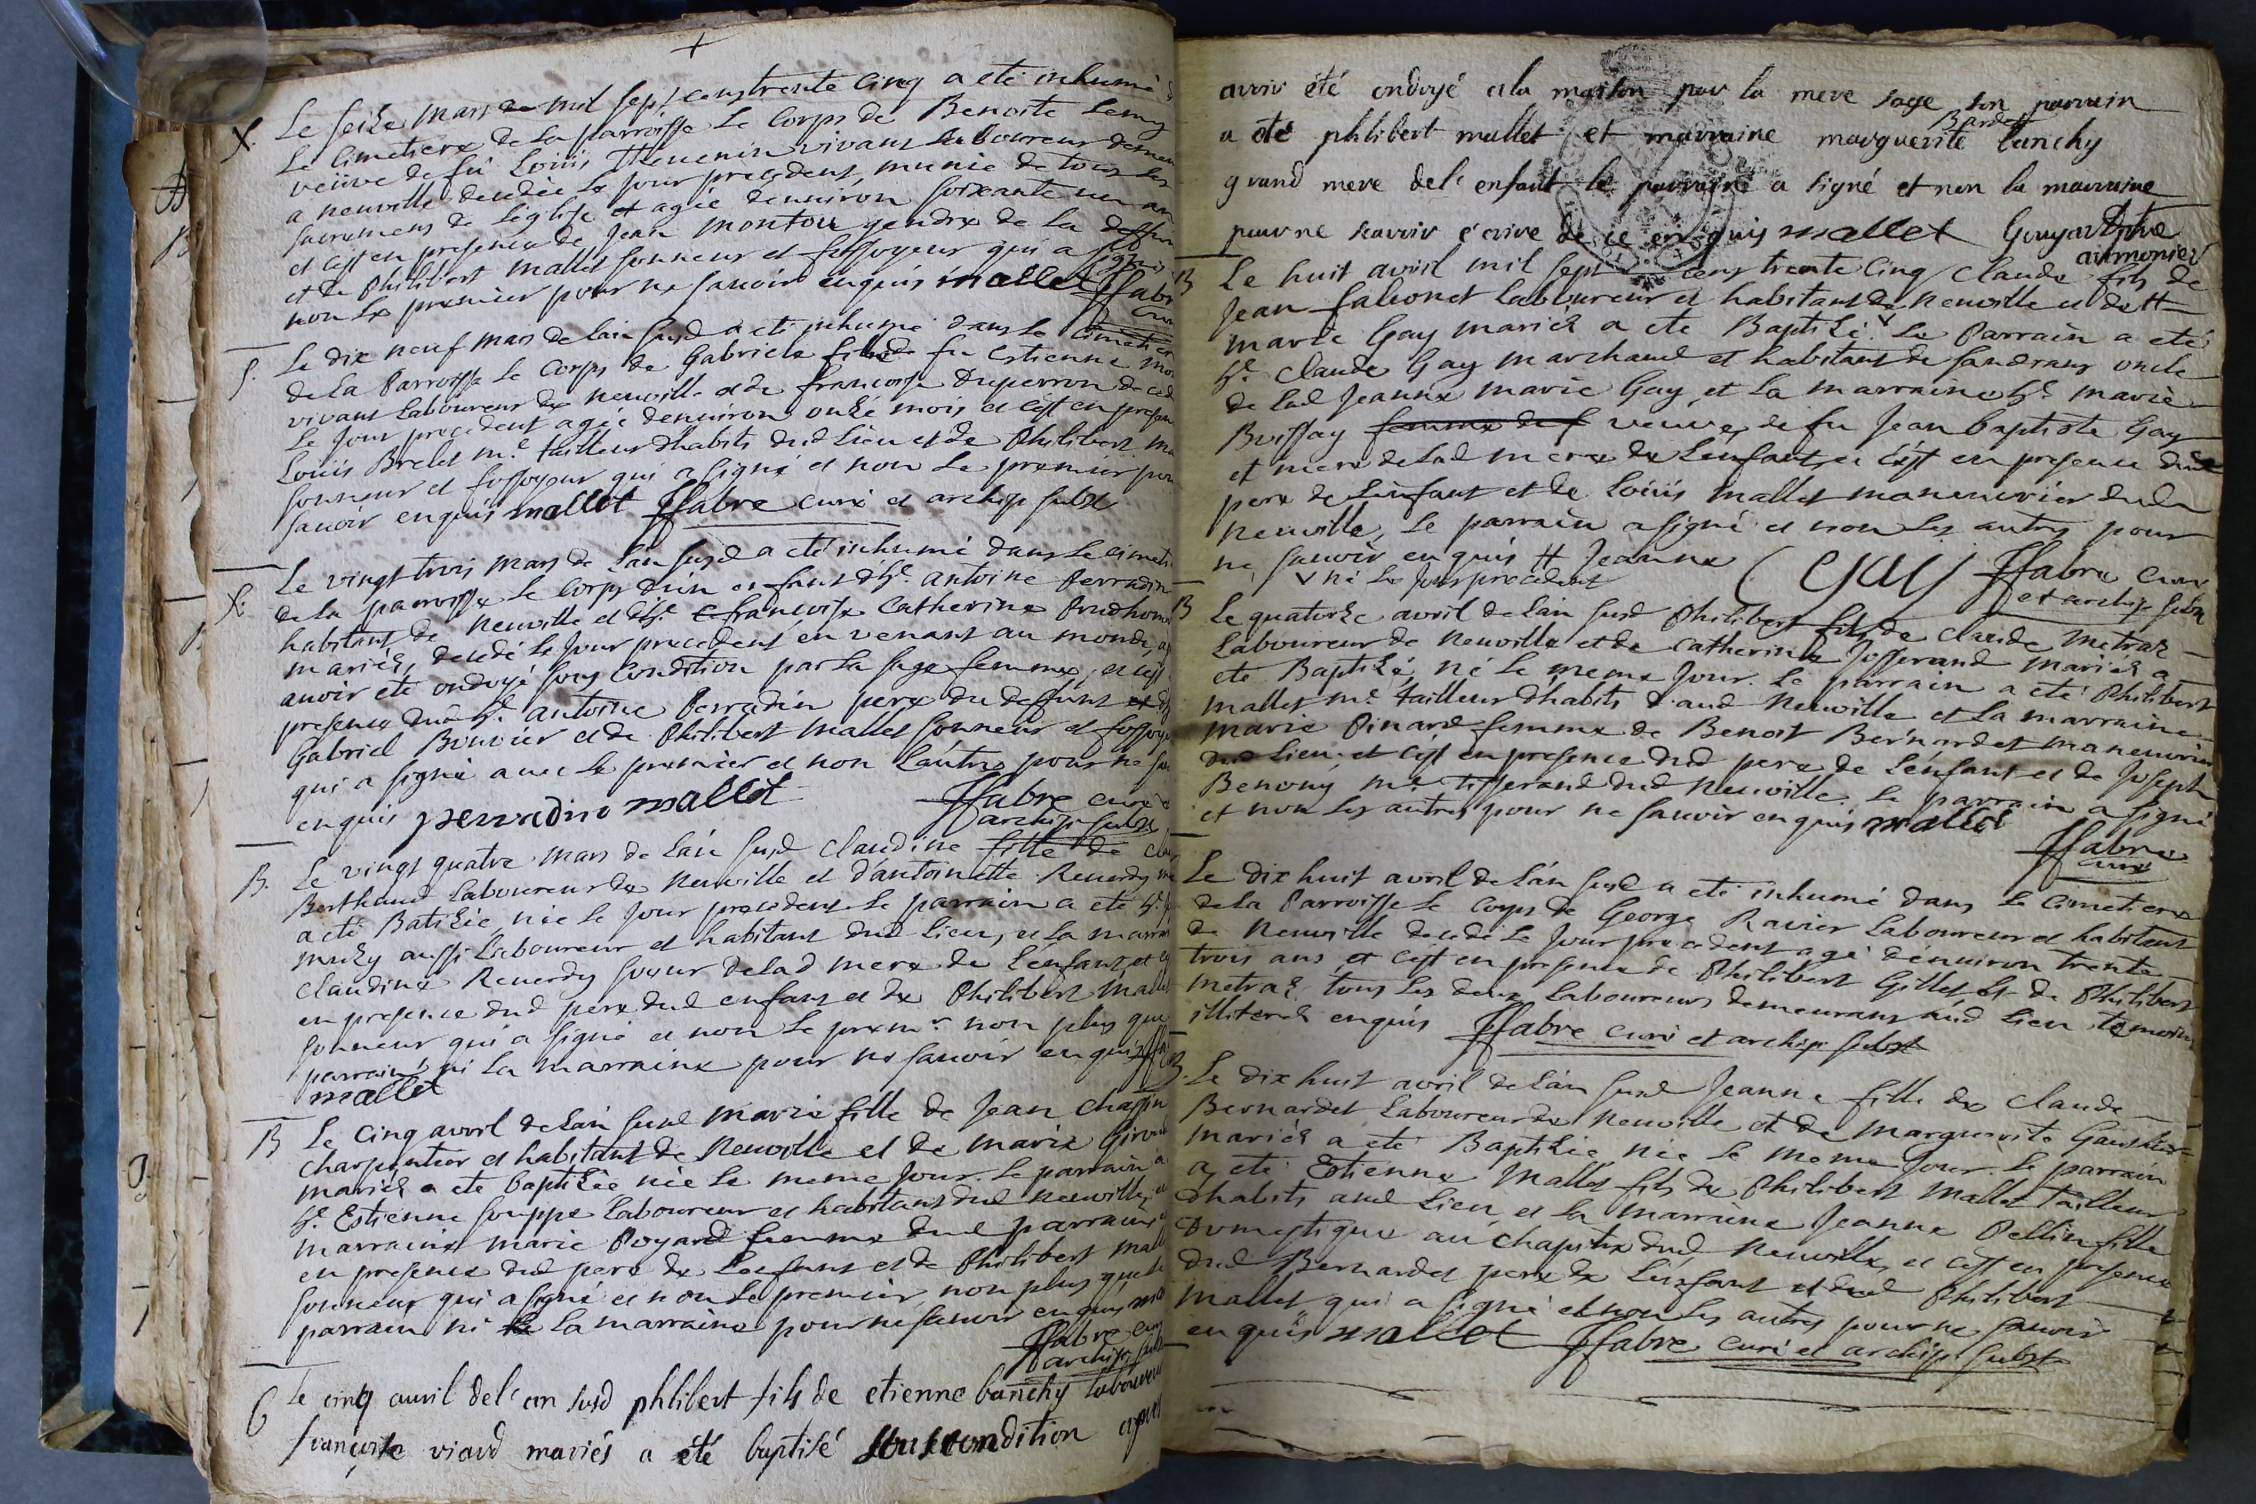 S. Le seize mars mil sept cens trente cinq a eté inhumé
Le Cimetiere de La parroisse Le Corps de Benoite
veüve de fû Loüis Thevenin vivant Laboureur
a neuville decedée Le jour precedent, munie de tous Les
sacremens de L'eglise et agée d'environ soixante un an
et c'est en presence de Jean montou gendre de La
et de Philibert mallet sonneur et fossoyeur qui a signé
non Le premier pour ne savoir enquis mallet ffabre
S. Le dix neuf mars de L'an susd a eté inhumé dans Le Cimetier
de La Parroisse Le Corps de Gabriele fille de fu Estienne
vivant Laboureur de neuville et de francoise Duperron
Le jour precedent agée d'environ onze mois et c'est en
Loüis Brelet me tailleur d'habits dud Lieu et de Philibert
sonneur et fossoyeur qui a signé et non Le premier
savoir enquis mallet ffabre curé et archip subst
S. Le vingt trois mars de L'an susd a eté inhumé dans Le
de La parroisse Le Corps d'un enfant d'hte antoine Perradin
habitant de Neuville et d'hte francoise Catherine Prudhom
mariés, decedé Le jour precedent en venant au monde,
avoir eté ondoyé sous Condition par La sage femme, et c'est
presence dud ht antoine Perradin pere du deffunt
Gabriel Bouvier et de Philibert mallet sonneur et
qui a signé avec Le premier et non L'autre pour ne
enquis perradin mallet ffabre curé
archip subst
B. Le vingt quatre mars de L'an susd Claudine fille de
Berthaud Laboureur de Neuville et d'antoinette Reverdy
a eté Batisée, née Le jour precedent. Le parrain a eté
aussi Laboureur et habitant dud Lieu, et La
Claudine Reverdy soeur de Lad mere de L'enfant, et
en presence dud pere dud enfant et de Philibert
sonneur qui a signé et non Le premr non plus que
parrain, ni La marraine pour ne savoir enquis
mallet
B Le cinq avril de L'an susd marie fille de Jean
Charpentier et habitant de Neuville et de marie
mariés a eté baptisée née Le meme jour. Le parrain
ht Estienne Souppe Laboureur et habitant dud neuville,
marraine marie Poyard femme dud parrain
en presence dud pere de L'enfant et de Philibert
sonneur qui a signé et non Le premier, non plus que
parrain ni La marraine pour ne savoir enquis
ffabre
archip
Le cinq avril del'an susd phlibert fils de etienne banchy
françoise viard mariés a été baptisé sous condition
avoir été ondoyé a la maison par la mere sage son parrain
Bardet
a été phlibert mallet et marraine marguerite banchy
grand mere del'enfant le parraine a signé et non la marraine
pour ne scavoir écrire de ce enquis mallet Gouyard ptre
aumonier
B Le huit avril mil sept cens trente cinq Claude fils de
Jean falconet Laboureur et habitant de neuville et de #
marie Gay mariés a eté Baptisé v Le Parrain a eté
ht Claude Gay marchand et habitant de sandrans oncle
de Lad Jeanne marie Gay, et La marraine hte marie
Buissay femme de f veuve de fu Jean baptiste Gay
et mere de Lad mere de L'enfant, et c'est en presence dud
pere de L'enfant et de Loüis mallet manouvrier dud
neuville, Le parrain a signé et non Les autres pour
ne savoir enquis # Jeanne CGAY ffabre curé
v né Le jour precedent et archip subst
B Le quatorze avril de L'an susd Philibert fils de Claude metras
Laboureur de neuville et de Catherine Josserand mariés a
eté Baptisé, né Le meme jour. Le parrain a eté Philibert
mallet me tailleur d'habits aud Neuville et La marraine
marie Pinard femme de Benoit Bernardet manouvrier
dud Lieu, et c'est en presence dud pere de L'enfant et de Joseph
Benony me tisserand dud Neuville, Le parrain a signé
et non Les autres pour ne savoir enquis mallet
ffabre
curé
Le dix huit avril de L'an susd a eté inhumé dans Le Cimetiere
de La Parroisse Le Corps de George Ravier Laboureur et habitant
de Neuville decedé Le jour precedent agé d'environ trente
trois ans et c'est en presence de Philibert Gillet et de Philibert
metras tous Les deux Laboureurs demeurans aud Lieu temoins
illiteres enquis ffabre curé et archip subst
B Le dix huit avril de L'an susd Jeanne fille de Claude
Bernardet Laboureur de Neuville et de marguerite Gauthier
mariés a eté Baptisée née Le meme jour. Le parrain
a eté Estienne mallet fils de Philibert mallet tailleur
d'habits aud Lieu et La marraine Jeanne Pellin fille
Domestique au Chapitre dud Neuville, et c'est en presence
dud Bernardet pere de L'enfant et dud Philibert
mallet qui a signé et non Les autres pour ne savoir
enquis mallet ffabre curé et archip subst